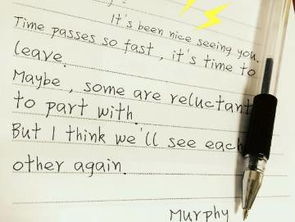 It's been nice seeing you.
Time passes so fast , it's time to
leave.
Maybe , some are reluctant
to part with.
But I think we'll see each
other again.
Murphy